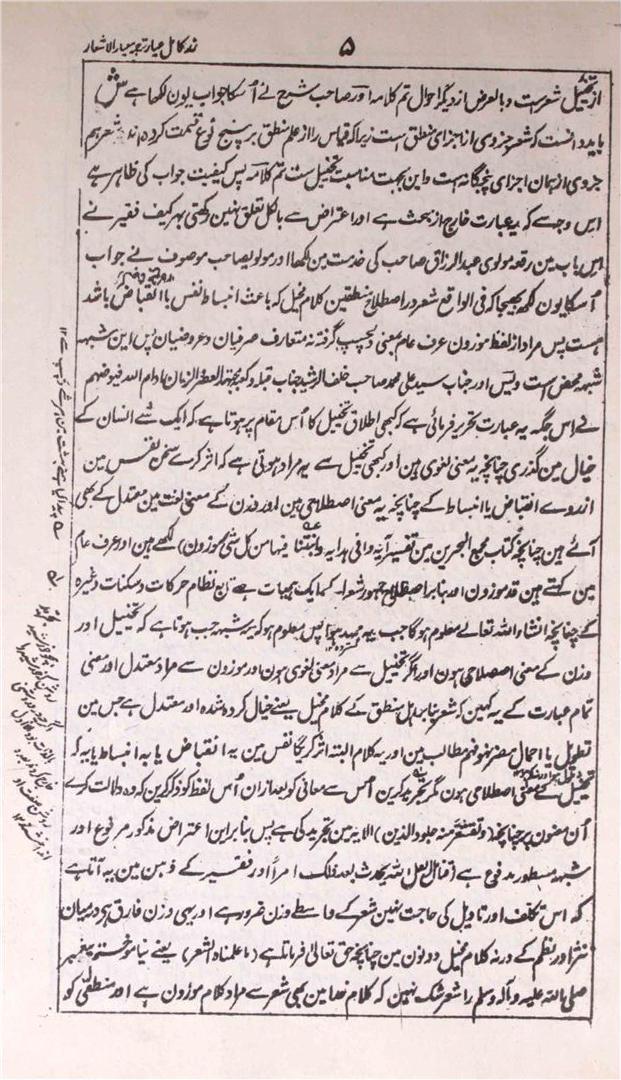 ۵
زر کامل عیار ترجمہ معیار الاشعار
از تخییل شعرست و بالعرض از دیگر احوال تم کلامہ اور صاحب شرح نے اُسکا جواب یون لکھا ہے ش
باید دانست کہ شعر جزوی از اجزای منطق است زیرا کہ قیاس را از علم منطق بر پنج نوع قسمت کردہ اند شعر ہم
جزوی از ہمان اجزای پنجگانہ است و این بجہت مناسبت تخییل ست تم کلامہ پس کیفیت جواب کی ظاہر ہے
اس وجہ سے کہ یہ عبارت خارج از بحث ہے اور اعتراض سے بالکل تعلق نہین رکھتی بہر کیف فقیر نے
اس باب مین رقعہ مولوی عبد الرزاق صاحب کی خدمت مین لکھا اور مولویصاحب موصوف نے جواب
اُسکا یون لکھ بھیجا کہ فی الواقع شعر در اصطلاح منطقین کلام مخیل کہ باعث انبساط نفس یا انقباض باشد
ہست پس مراد از لفظ موزون عرف عام بمعنی دلچسپ گرفتہ نہ متعارف صرفیان و عروضیان پس این شبہہ
شبہہ محض است ولیس اور جناب سید علی محمد صاحب خلف الرشید جناب قبلہ و کعبہ مجتہد العصر و الزمان مادام اللہ فیوضہم
نے اس جگہ یہ عبارت تحریر فرمائی ہے کہ کبھی اطلاق تخییل کا اُس مقام پر ہوتا ہے کہ ایک شے انسان کے
خیال مین گذری چنانچہ یہ معنی لغوی ہین اور کبھی تخییل سے یہ مراد ہوتی ہے کہ اثر کرے سخن نفس مین
از روے انقباض یا انبساط کے چنانچہ یہ معنی اصطلاحی ہین اور وزن کے معنی لغت مین معتدل کے بھی
آئے ہین چنانچہ کتاب مجمع البحرین مین تفسیر آیۂ وافی ہدایہ (وانبتنا فیہا من کل شی موزون) لکھے ہین اور عرف عام
مین کہتے ہین قد موزون اور بنا بر اصطلاح جمہور شعرا کے ایک ہیات ہے تابع نظام حرکات و سکنات وغیرہ
کے چنانچہ انشاء اللہ تعالے معلوم ہوگا جب یہ ممہد ہوا پس معلوم ہو کہ یہ شبہہ جب ہوتا ہے کہ تخییل اور
وزن کے معنی اصطلاحی ہون اور اگر تخییل سے مراد معنی لغوی ہون اور موزون سے مراد معتدل اور معنی
تمام عبارت کے یہ کہین کہ شعر بنا بر اہل منطق کے کلام مخیل یعنے خیال کردہ شدہ اور معتدل ہے جس مین
تطویل یا اجمال مضر بفہم مطالب ہین اور یہ کلام البتہ اثر کریگا نفس مین یہ انقباض یا بہ انبساط یا یہ کہ
تخییل کے معنی اصطلاحی ہون مگر تجرید کرین اُس سے معانی کو بعد ازان اُس لفظ کو ذکر کرین کہ وہ دلالت کرے
اُن مضمون پر چنانچہ (وتقشعر منہ جلود الذین) الایہ مین تجرید کی ہے پس بنا بر این اعتراض مذکور مرفوع اور
شبہہ مسطور مدفوع ہے (فتامل لعل اللہ یحدث بعد ذلک امرا) اور فقیر کے ذہن مین یہ آتا ہے
کہ اس تکلف اور تاویل کی حاجت نہین شعر کے واسطے وزن ضرور ہے اور یہی وزن فارق ہی درمیان
نثر اور نظم کے ورنہ کلام مخیل دونون مین چنانچہ حق تعالیٰ فرماتا ہے (ما علمناہ الشعر) یعنے نیاموختم پیغمبر
صلی اللہ علیہ وآلہ وسلم را شعر شک نہین کہ کلام خدا مین بھی شعر سے مراد کلام موزون ہے اور منطقی کو